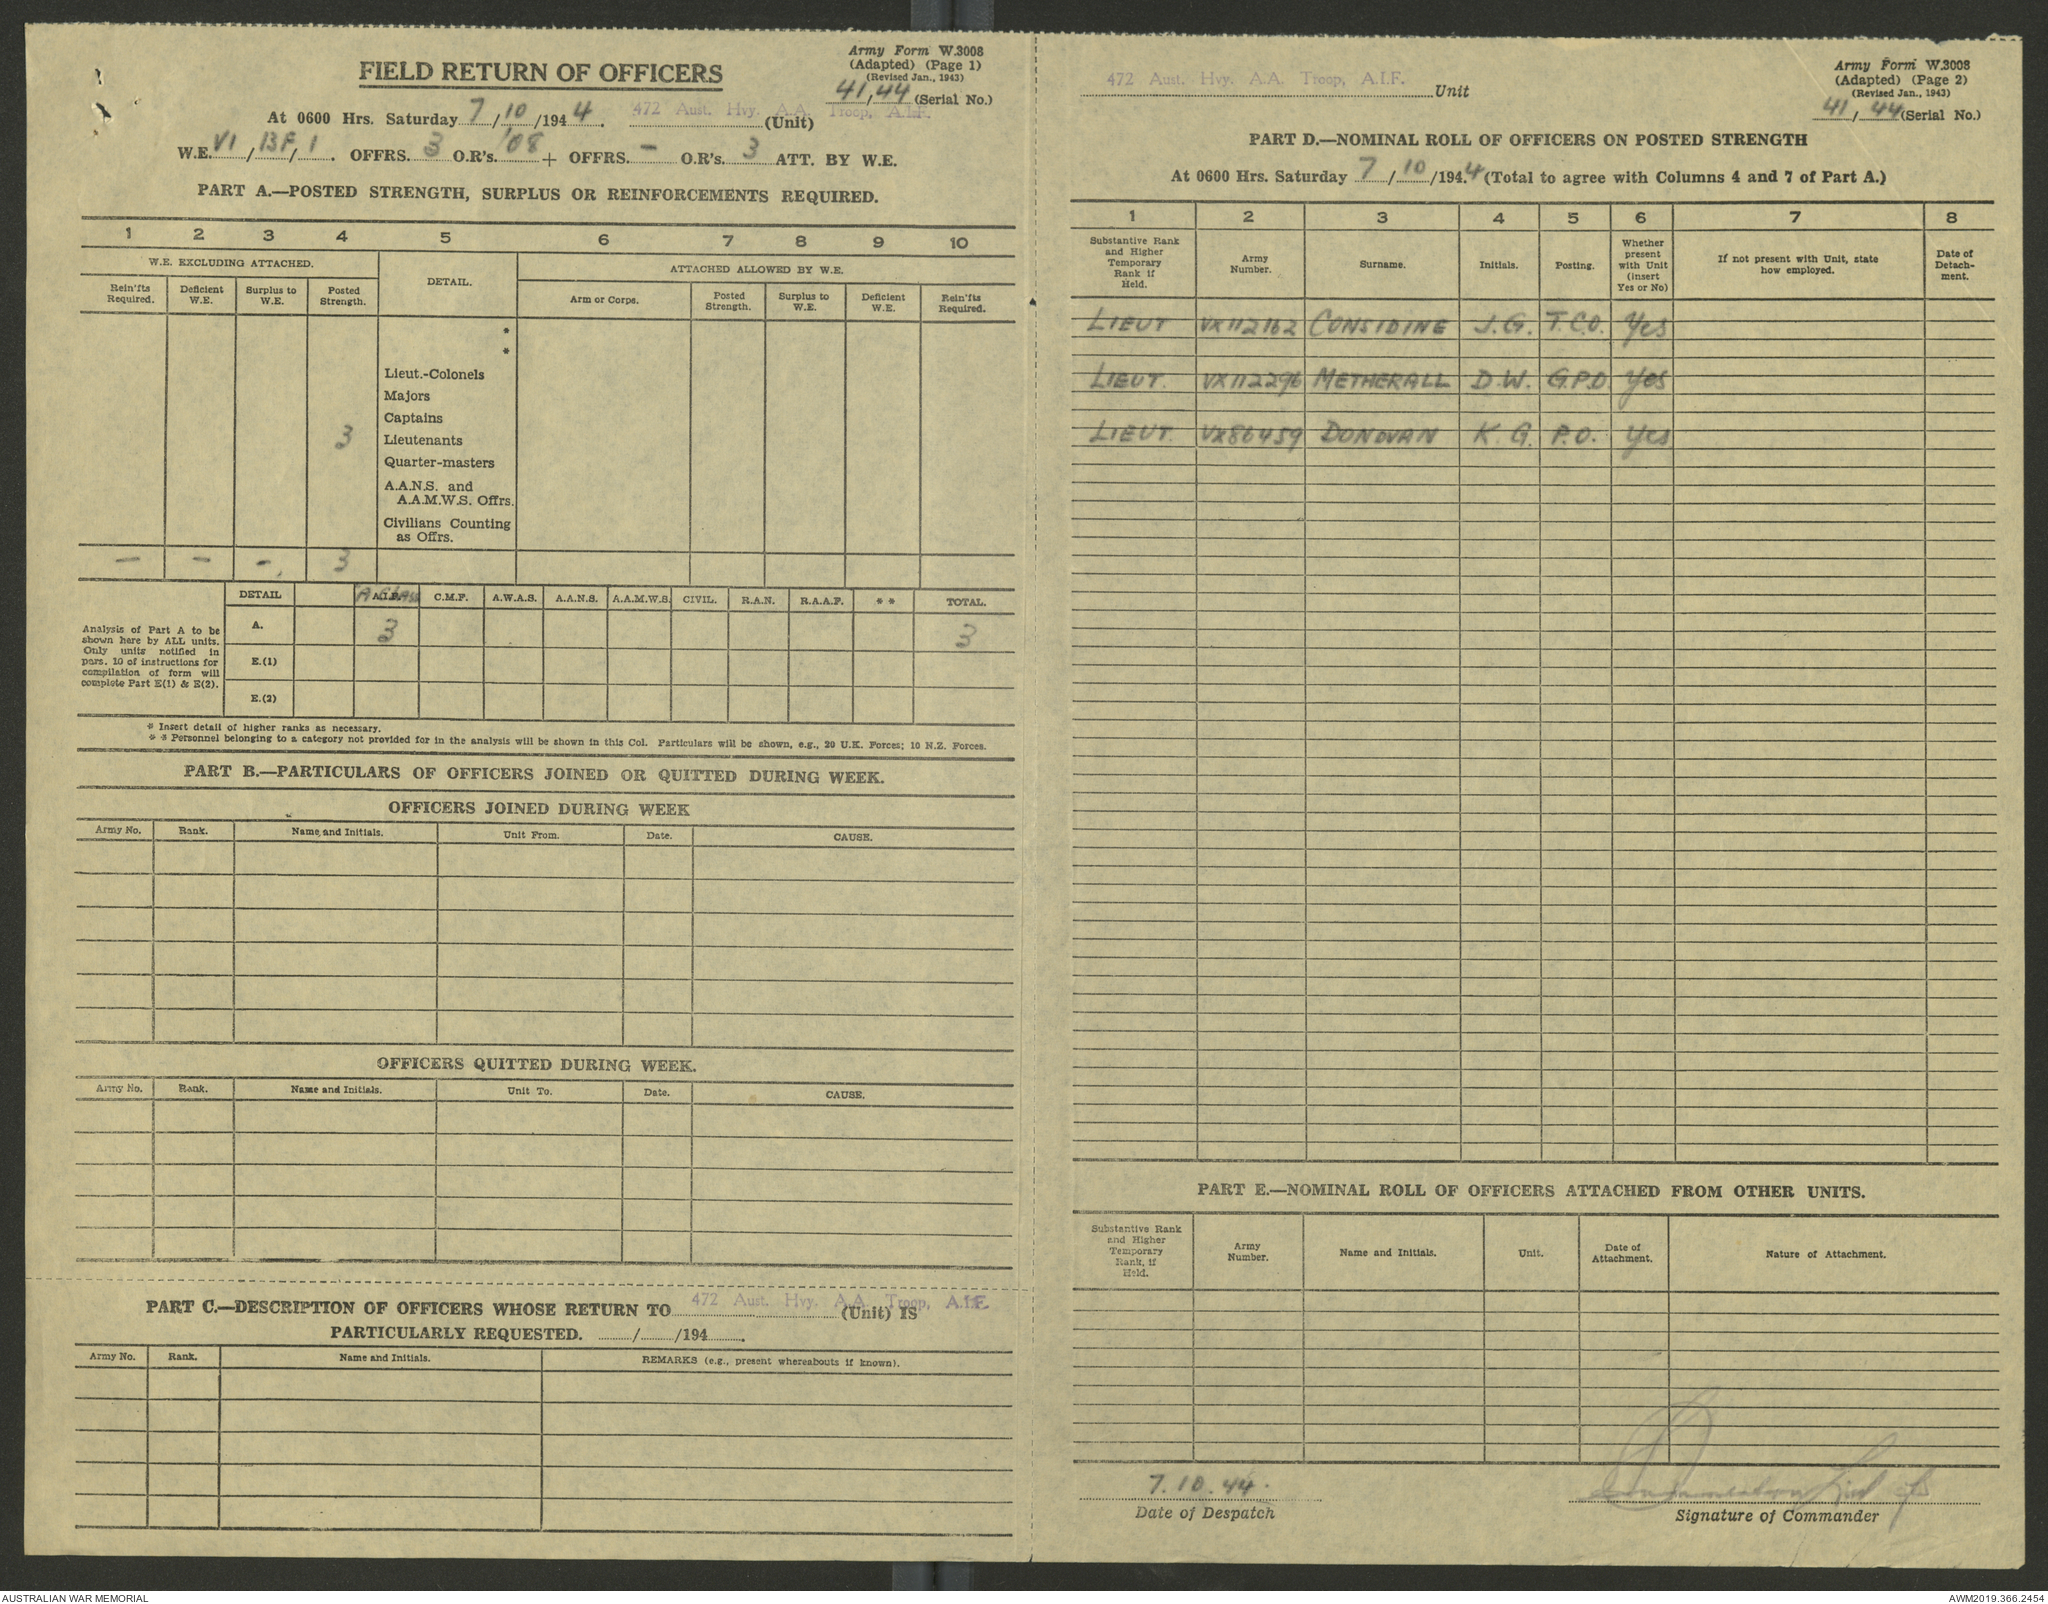 Army Form W.3008
(Adapted) (Page 1)
(Revised Jan., 1943)
41/44 (Serial No.)
FIELD RETURN OF OFFICERS
At 0600 Hrs. Saturday 7/10/1944. 472 Aust. Hvy. A.A. Troop, A.I.F. (Unit)
W.E. VI/BF/1. OFFRS. 3 O.R's. '08 + OFFRS. - O.R's. 3 ATT. BY W.E.
PART A.—POSTED STRENGTH, SURPLUS OR REINFORCEMENTS REQUIRED.
1 2 3 4 5 6 7 8 9 10
W.E. EXCLUDING ATTACHED. DETAIL. ATTACHED ALLOWED BY W.E.
Rein'fts Required. Deficient W.E. Surplus to W.E. Posted Strength. Arm or Corps. Posted Strength. Surplus to W.E. Deficient W.E. Rein'fts Required.
*
*
Lieut.-Colonels
Majors
Captains
3 Lieutenants
Quarter-masters
A.A.N.S. and
A.A.M.W.S. Offrs.
Civilians Counting
as Offrs.
— — — 3
DETAIL A.I.F. C.M.F. A.W.A.S. A.A.N.S. A.A.M.W.S. CIVIL. R.A.N. R.A.A.F. * * TOTAL.
Analysis of Part A to be
shown here by ALL units.
Only units notified in
pars. 10 of instructions for
compilation of form will
complete Part E(1) & E(2).
A. 3 3
E.(1)
E.(2)
* Insert detail of higher ranks as necessary.
* * Personnel belonging to a category not provided for in the analysis will be shown in this Col. Particulars will be shown, e.g., 20 U.K. Forces; 10 N.Z. Forces.
PART B.—PARTICULARS OF OFFICERS JOINED OR QUITTED DURING WEEK.
OFFICERS JOINED DURING WEEK
Army No. Rank. Name and Initials. Unit From. Date. CAUSE.
OFFICERS QUITTED DURING WEEK.
Army No. Rank. Name and Initials. Unit To. Date. CAUSE.
PART C.—DESCRIPTION OF OFFICERS WHOSE RETURN TO 472 Aust. Hvy. A.A. Troop, A.I.F. (Unit) IS
PARTICULARLY REQUESTED. / /194 .
Army No. Rank. Name and Initials. REMARKS (e.g., present whereabouts if known).
Army Form W.3008
(Adapted) (Page 2)
(Revised Jan., 1943)
41/44 (Serial No.)
472 Aust. Hvy. A.A. Troop, A.I.F. Unit
PART D.—NOMINAL ROLL OF OFFICERS ON POSTED STRENGTH
At 0600 Hrs. Saturday 7/10/1944 (Total to agree with Columns 4 and 7 of Part A.)
1 2 3 4 5 6 7 8
Substantive Rank and Higher Temporary Rank if Held. Army Number. Surname. Initials. Posting. Whether present with Unit (insert Yes or No) If not present with Unit, state how employed. Date of Detachment.
LIEUT VX112162 CONSIDINE J.G. T.C.O. Yes
LIEUT. VX112296 METHERALL D.W. G.P.O. Yes
LIEUT. VX86459 DONOVAN K.G. P.O. Yes
PART E.—NOMINAL ROLL OF OFFICERS ATTACHED FROM OTHER UNITS.
Substantive Rank and Higher Temporary Rank, if Held. Army Number. Name and Initials. Unit. Date of Attachment. Nature of Attachment.
7.10.44.
Date of Despatch
Signature of Commander
AUSTRALIAN WAR MEMORIAL
AWM2019.366.2454